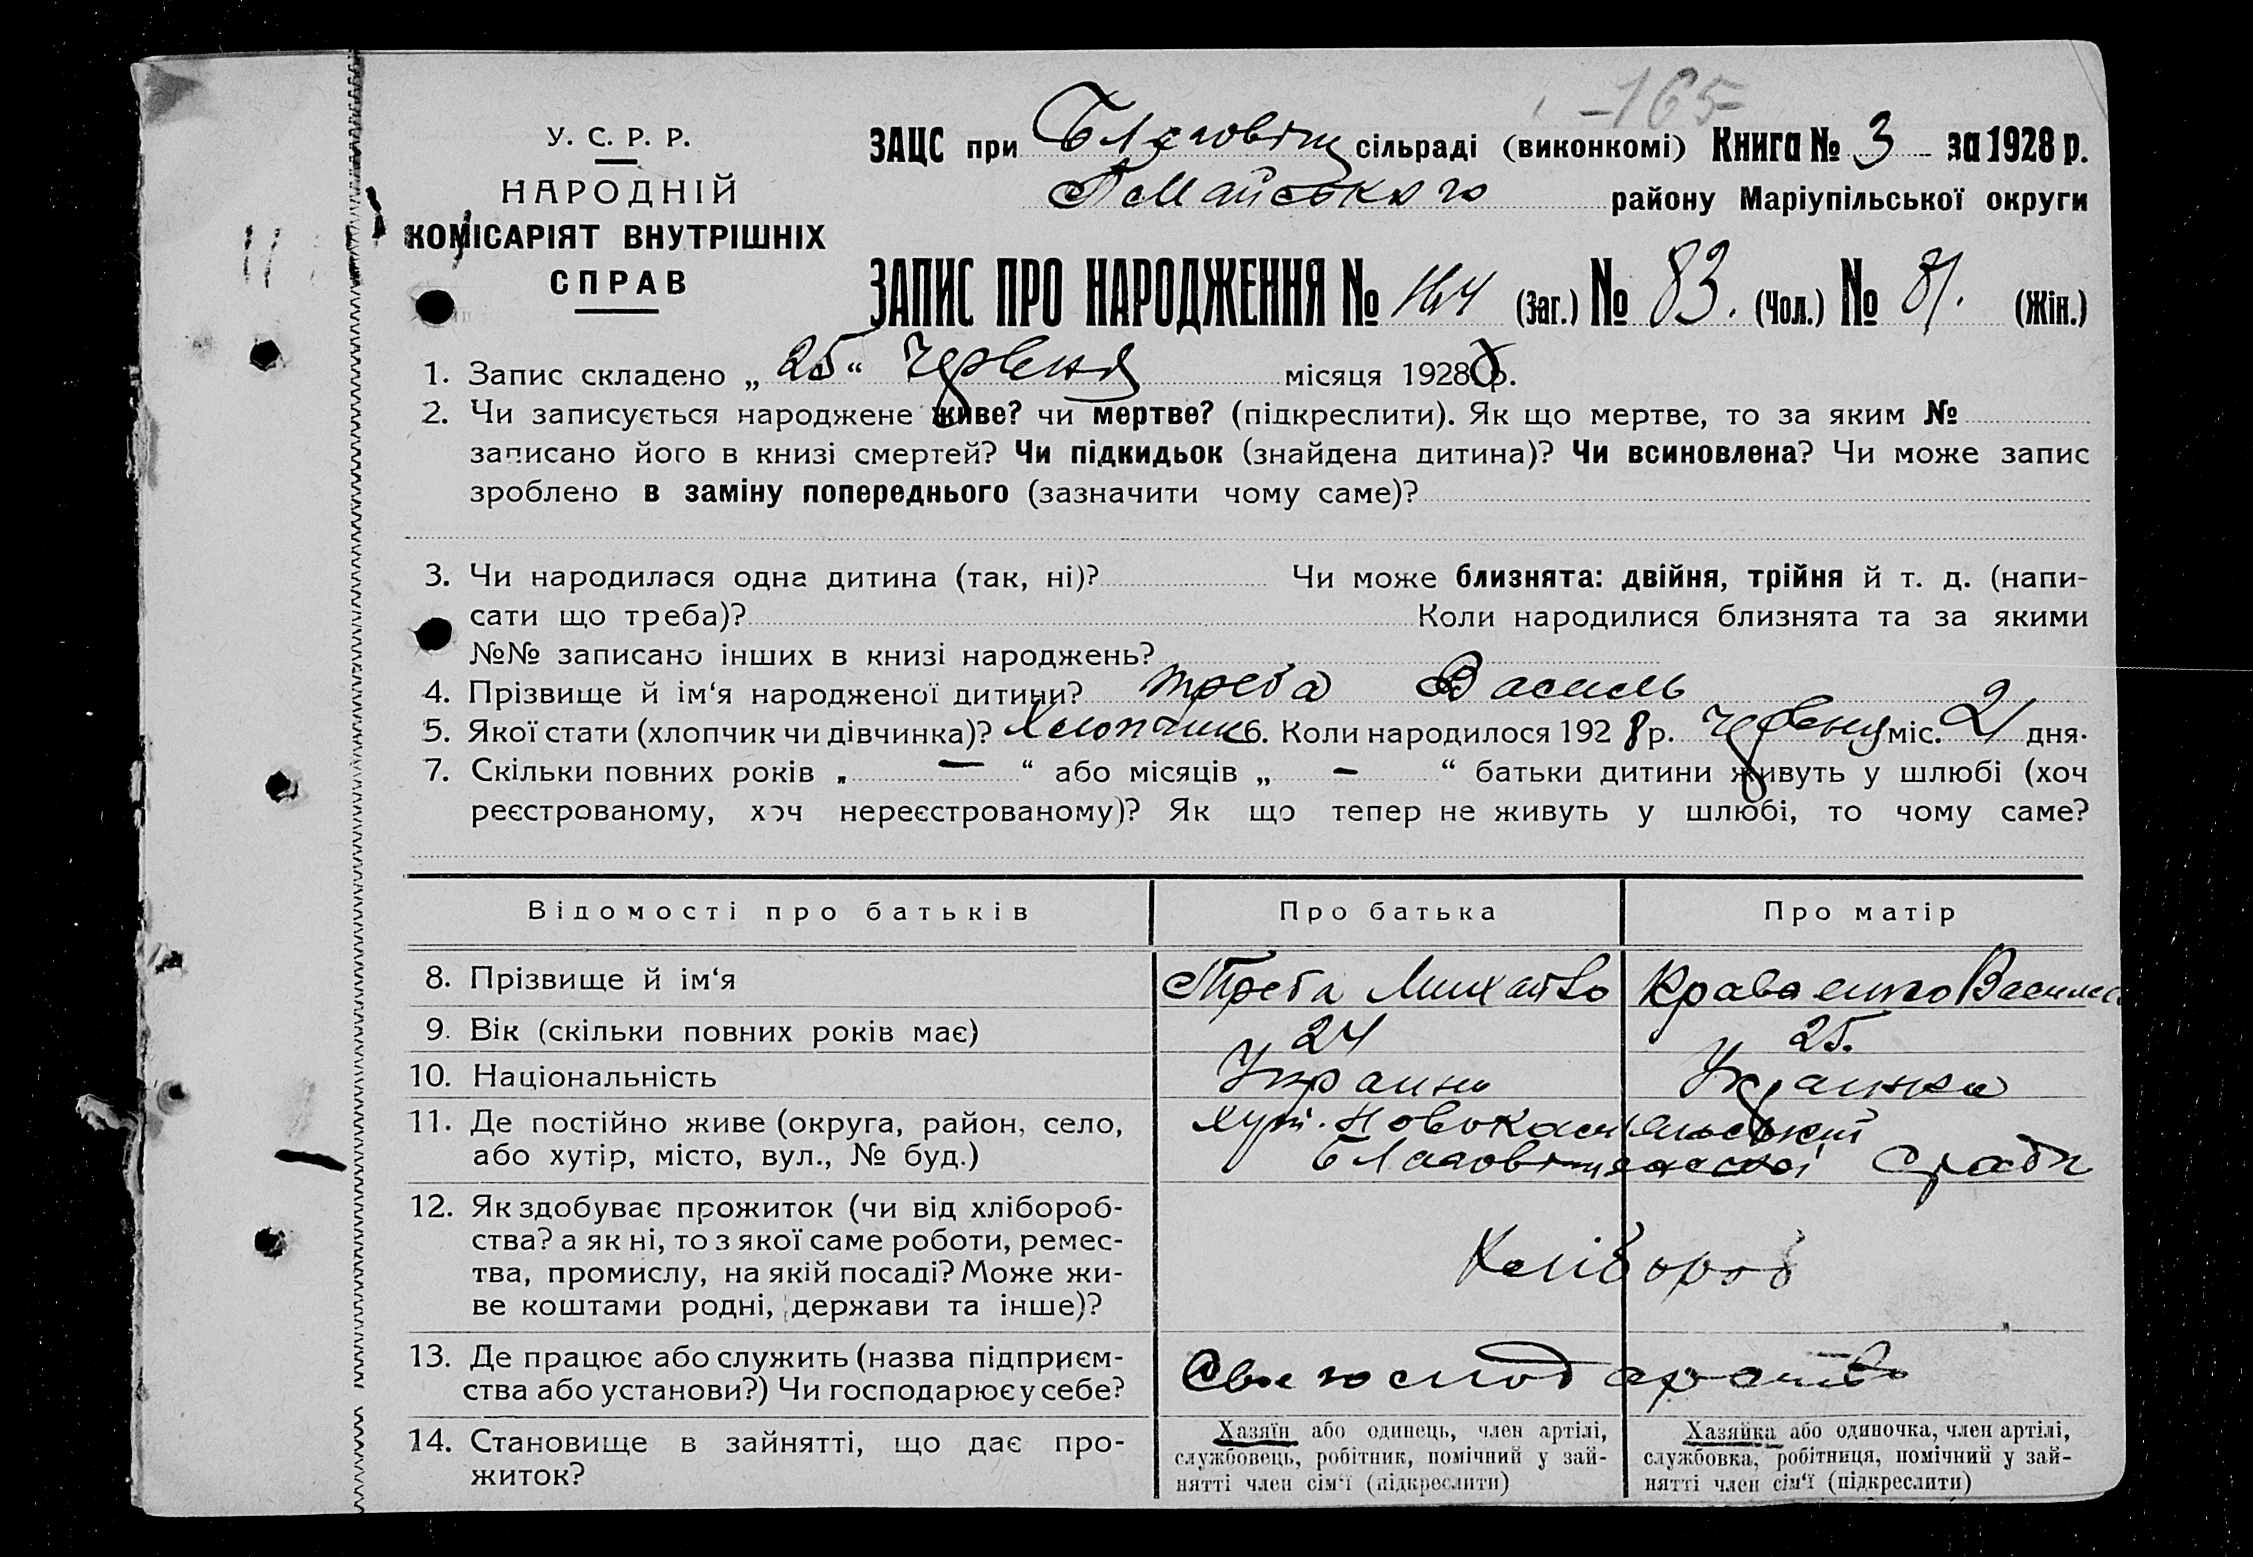 -165
У. С. Р. Р.
НАРОДНІЙ
КОМІСАРІЯТ ВНУТРІШНІХ
СПРАВ
ЗАЦС при Благовіщ сільраді (виконкомі) Книга № 3 за 1928 р.
Майського району Маріупільської округи
ЗАПИС ПРО НАРОДЖЕННЯ № 164 (Заг.) № 83. (Чол.) № 81. (Жін.)
1. Запис складено „ 25 “ Червня місяця 1928 р.
2. Чи записується народжене живе? чи мертве? (підкреслити). Як що мертве, то за яким №
записано його в книзі смертей? Чи підкидьок (знайдена дитина)? Чи всиновлена? Чи може запис
зроблено в заміну попереднього (зазначити чому саме)?
3. Чи народилася одна дитина (так, ні)? Чи може близнята: двійня, трійня й т. д. (напи-
сати що треба)? Коли народилися близнята та за якими
№№ записано інших в книзі народжень?
4. Прізвище й ім‘я народженої дитини? Треба Василь
5. Якої стати (хлопчик чи дівчинка)? Хлопчик 6. Коли народилося 1928 р. Червня міс. 21 дня.
7. Скільки повних років „ — “ або місяців „ — “ батьки дитини живуть у шлюбі (хоч
реєстрованому, хоч нереєстрованому)? Як що тепер не живуть у шлюбі, то чому саме?
Відомості про батьків Про батька Про матір
8. Прізвище й ім‘я Треба Михайло Кравченко
9. Вік (скільки повних років має) 24 25.
10. Національність Украинец Украинка
11. Де постійно живе (округа, район, село, хут.
або хутір, місто, вул., № буд.) Благовіщенської С/ради
12. Як здобуває прожиток (чи від хлібороб-
ства? а як ні, то з якої саме роботи, ремес-
тва, промислу, на якій посаді? Може жи-
ве коштами родні, держави та інше)?
Хлібороб
13. Де працює або служить (назва підприєм-
ства або установи?) Чи господарює у себе?
Своє господарство
14. Становище в зайнятті, що дає про-
житок?
Хазяїн або одинець, член артілі,
службовець, робітник, помічний у зай-
нятті член сім‘ї (підкреслити)
Хазяйка або одиночка, член артілі,
службовка, робітниця, помічний у зай-
нятті член сім‘ї (підкреслити)